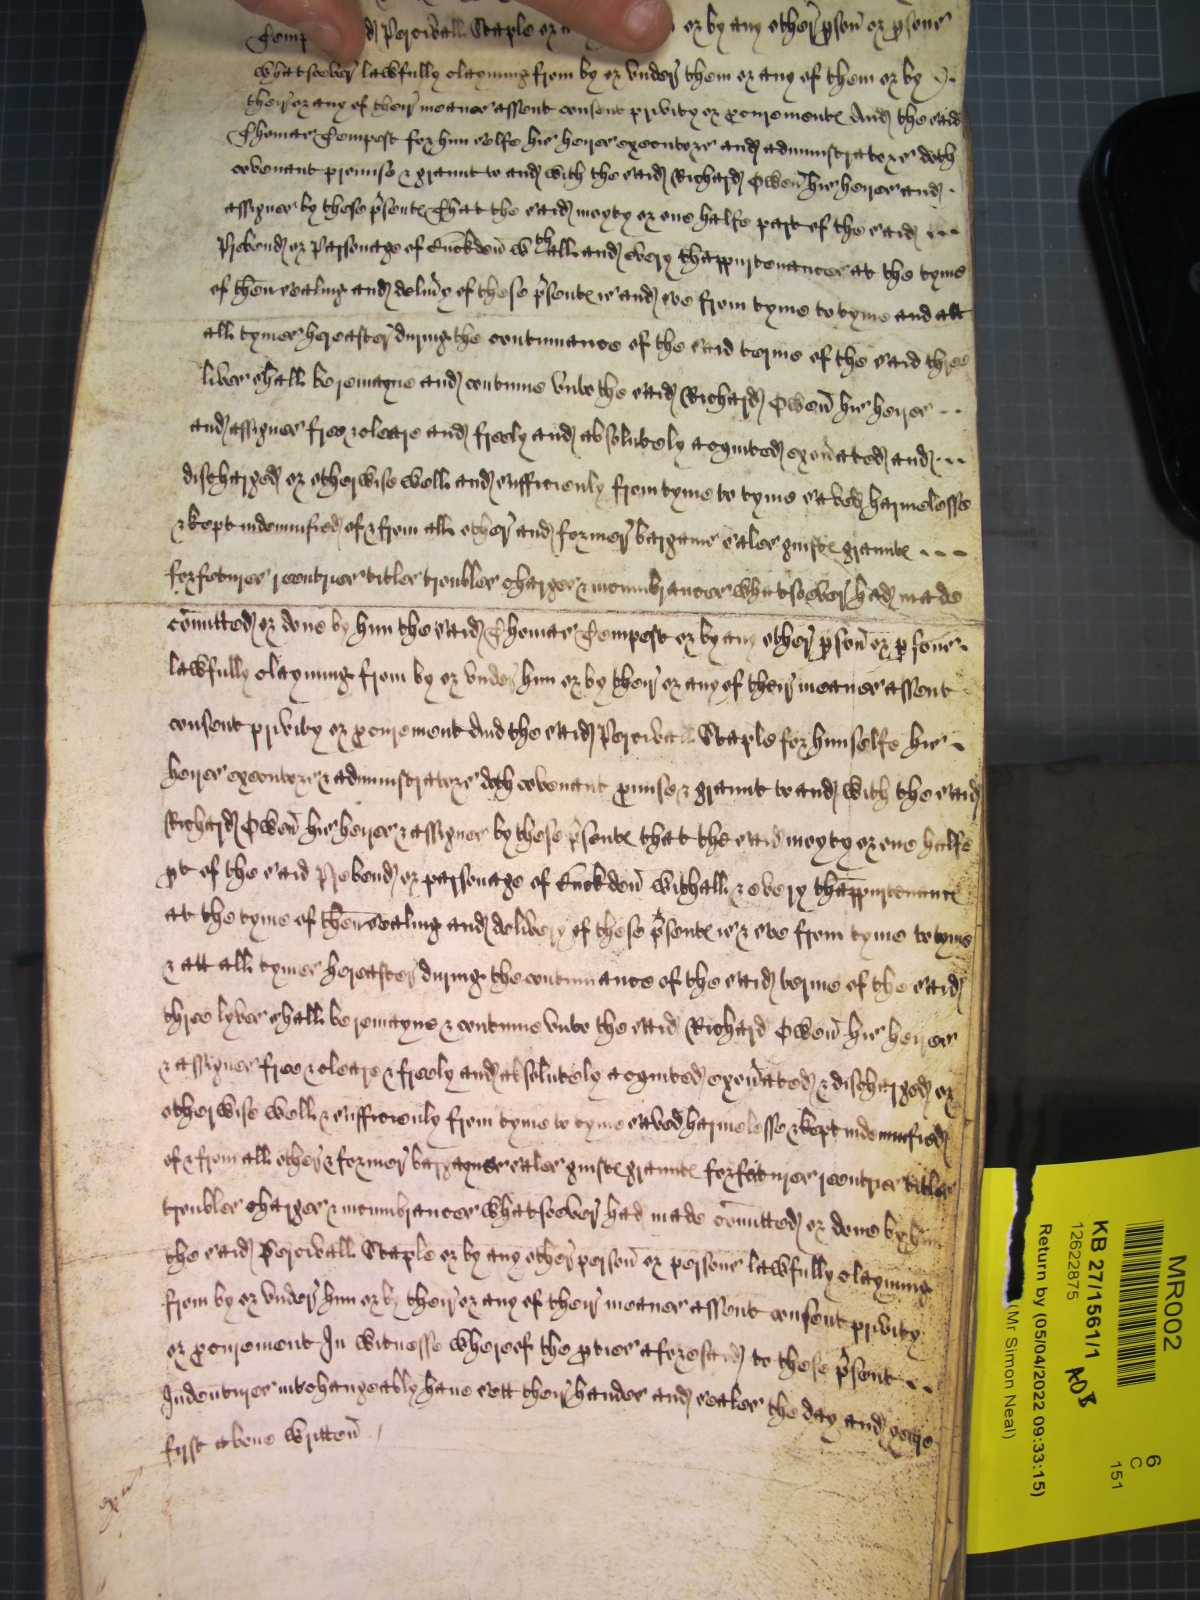 Comp d Percivall Staple or or by any other pson or psons
whatsoever lawfully clayming from by or under them or any of them or by
their or any of their meanes assent consent privity or pcurement And the said
Thomas Compost for him selfe his heires executors and administrators doth
covenant promise & graunt to and with the said Richard Owen his heires and
assignes by these psents That the said moyty or one halfe part of the said
Prebend or Parsonage of Buckden wth all and every thappurtenances at the tyme
of thensealing and delivy of these psents is and soe from tyme to tyme and att
all tymes hereafter during the continuance of the said terme of the said three
lives shall be remayne and continue unto the said Richard Owen his heires
and assignes free & cleare and freely and absolutely acquited exonated and
discharged or otherwise well and sufficienly from tyme to tyme saved harmelesse
& kept indemnified of & from all other and former bargaines sales guifts graunts
forfeitures jointures titles troubles charges & incumbrances whatsoever had made
comitted or done by him the said Thomas Compost or by any other pson or psons
lawfully clayming from by or under him or by their or any of their meanes assent
consent privity or pcurement And the said Percivall Staple for himselfe his
heires executors & administrators doth covenant pmise & graunt to and with the said
Richard Owen his heires & assignes by these psents that the said moyty or one halfe
pt of the said Prebend or parsonage of Buckden withall & every thappurtenances
at the tyme of thensealing and delivery of these psents is & soe from tyme to tyme
& att all tymes hereafter during the continuance of the said terme of the said
three lyves shall be remayne & continue unto the said Richard Owen his heires
& assignes free & cleare & freely and absolutely acquited exonated & discharged or
otherwise well & sufficienly from tyme to tyme saved harmelesse & kept indemnified
of & from all other & former bargaines sales guifts graunts forfeitures jointures titles
troubles charges & incumbrances whatsoever had made comitted or done by him
the said Percivall Staple or by any other person or persons lawfully clayming
from by or under him or by their or any of their meanes assent consent privity
or pcurement In witnesse whereof the pties aforesaid to these psent
Indentures interchangeably have sett their handes and seales the day and yeare
first above written
MR002
KB 27/1561/1
12622875
Return by (05/04/2022 09:33:15)
(Mr Simon Neal)
AOB
6
C
151